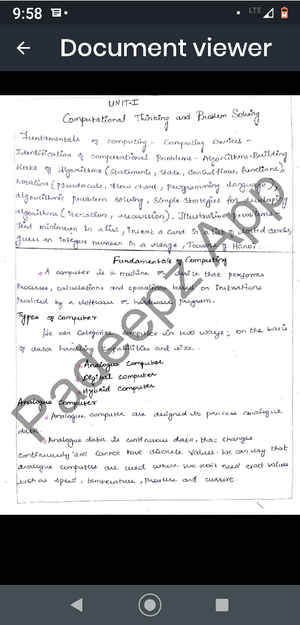 9:58
LTE
Document viewer
UNIT-I
Computational Thinking and Problem Solving
Fundamentals of computing - Computing Devices -
Identification of computational Problems - Algorithms - Building
blocks of algorithms (statements, state, control flow, functions),
notation (pseudocode, flow chart, programming language),
algorithmic problem solving, simple strategies for developing
algorithms (iteration, recursion). Illustrative problems:
find minimum in a list, insert a card in a list of sorted cards,
guess an integer number in a range, Towers of Hanoi.
Fundamentals of Computing
A computer is a machine or device that performs
processes, calculations and operations based on instructions
provided by a software or hardware program.
Types of Computer
We can categorize computer in two ways: on the basis
of data handling capabilities and size.
Analogue Computer
Digital computer
Hybrid computer
Analogue Computer
Analogue computer are designed to process analogue
data.
Analogue data is continuous data, that changes
continuously and cannot have discrete values. We can say that
analogue computers are used where we don't need exact values
such as speed, temperature, pressure and current.
Pradeepz App